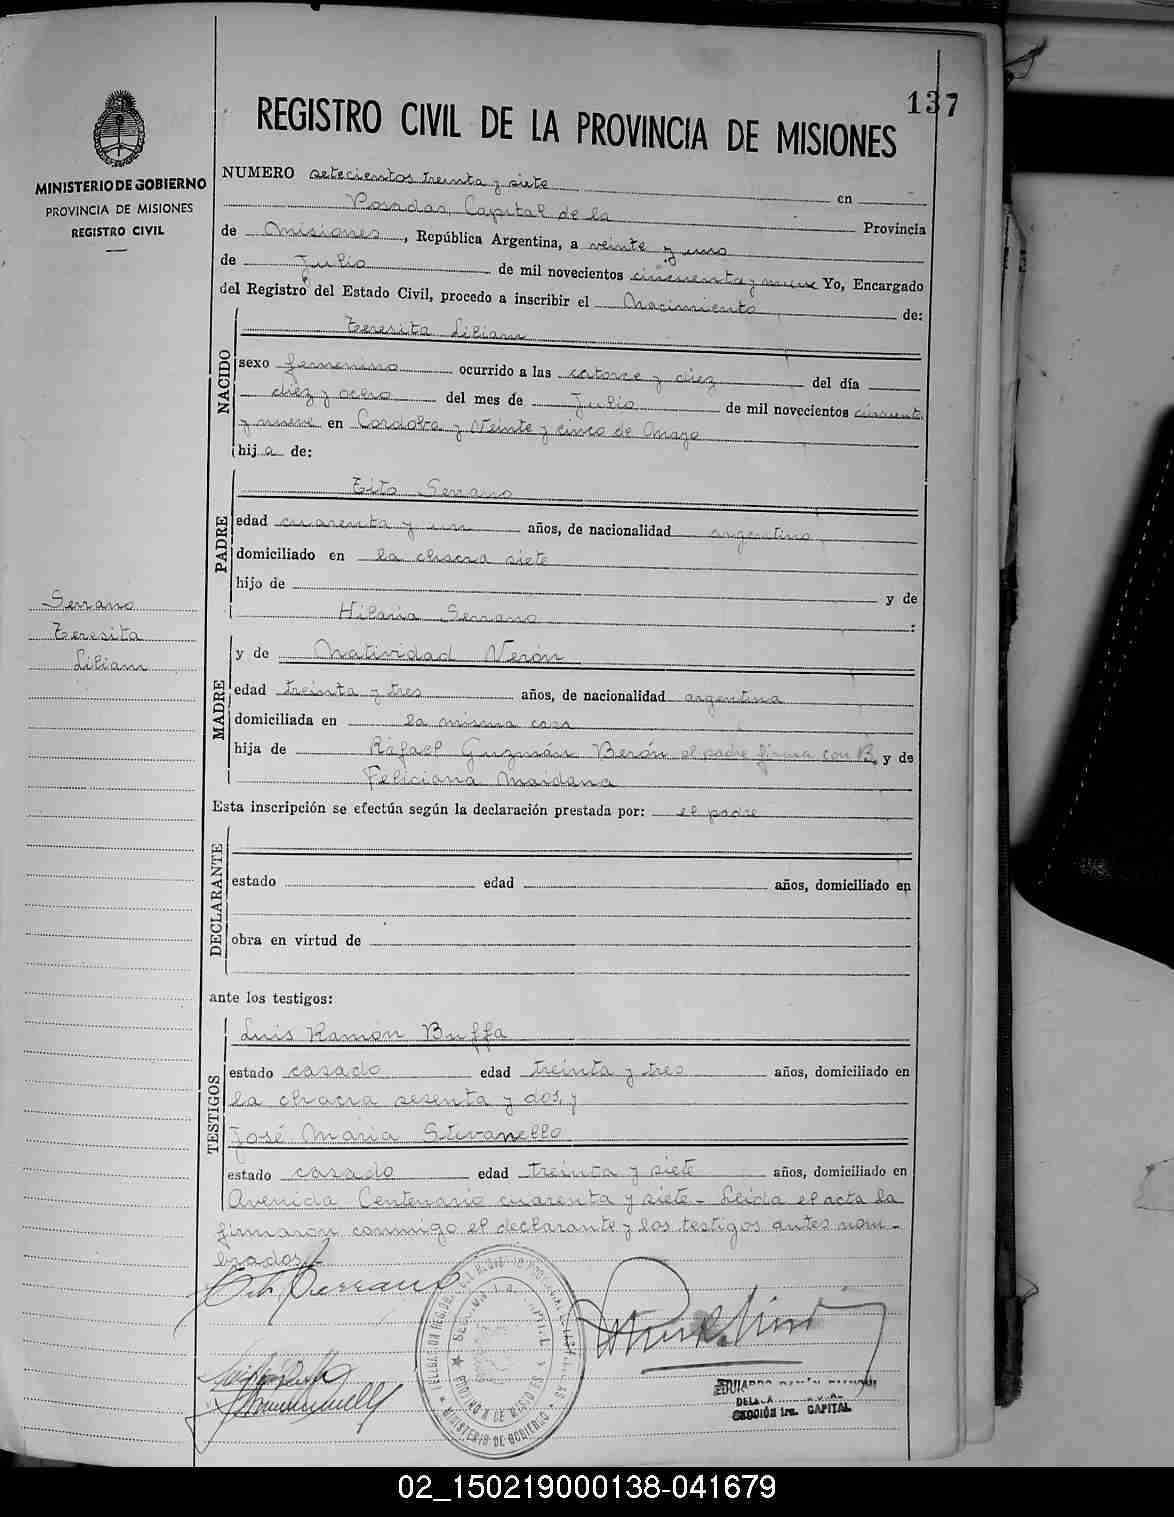 137
REGISTRO CIVIL DE LA PROVINCIA DE MISIONES
MINISTERIO DE GOBIERNO
PROVINCIA DE MISIONES
REGISTRO CIVIL
NUMERO setecientos treinta y siete en
Posadas, Capital de la Provincia
de Misiones, República Argentina, a veinte y uno
de Julio de mil novecientos cincuenta y nueve Yo, Encargado
del Registro del Estado Civil, procedo a inscribir el Nacimiento de:
NACIDO
Teresita Liliam
sexo femenino ocurrido a las catorce y diez del día
diez y ocho del mes de Julio de mil novecientos cincuenta
y nueve en Cordoba y Veinte y cinco de Mayo
hija de:
PADRE
Tito Serrano
edad cuarenta y un años, de nacionalidad argentino
domiciliado en la chacra siete
hijo de y de
Hilaria Serrano :
Serrano
Teresita
Liliam
MADRE
y de Natividad Verón
edad treinta y tres años, de nacionalidad argentina
domiciliada en la misma casa
hija de Rafael Guzmán Berón el padre firma con B, y de
Feliciana Maidana
Esta inscripción se efectúa según la declaración prestada por: el padre
DECLARANTE
estado edad años, domiciliado en
obra en virtud de
ante los testigos:
TESTIGOS
Luis Ramón Buffa
estado casado edad treinta y tres años, domiciliado en
la chacra sesenta y dos, y
José Maria Stevanello
estado casado edad treinta y siete años, domiciliado en
Avenida Centenario cuarenta y siete - Leída el acta la
firmaron conmigo el declarante y los testigos antes nom-
brados.
Tito Serrano
MINISTERIO DE GOBIERNO
SECCIÓN 1ra. CAPITAL
02_150219000138-041679